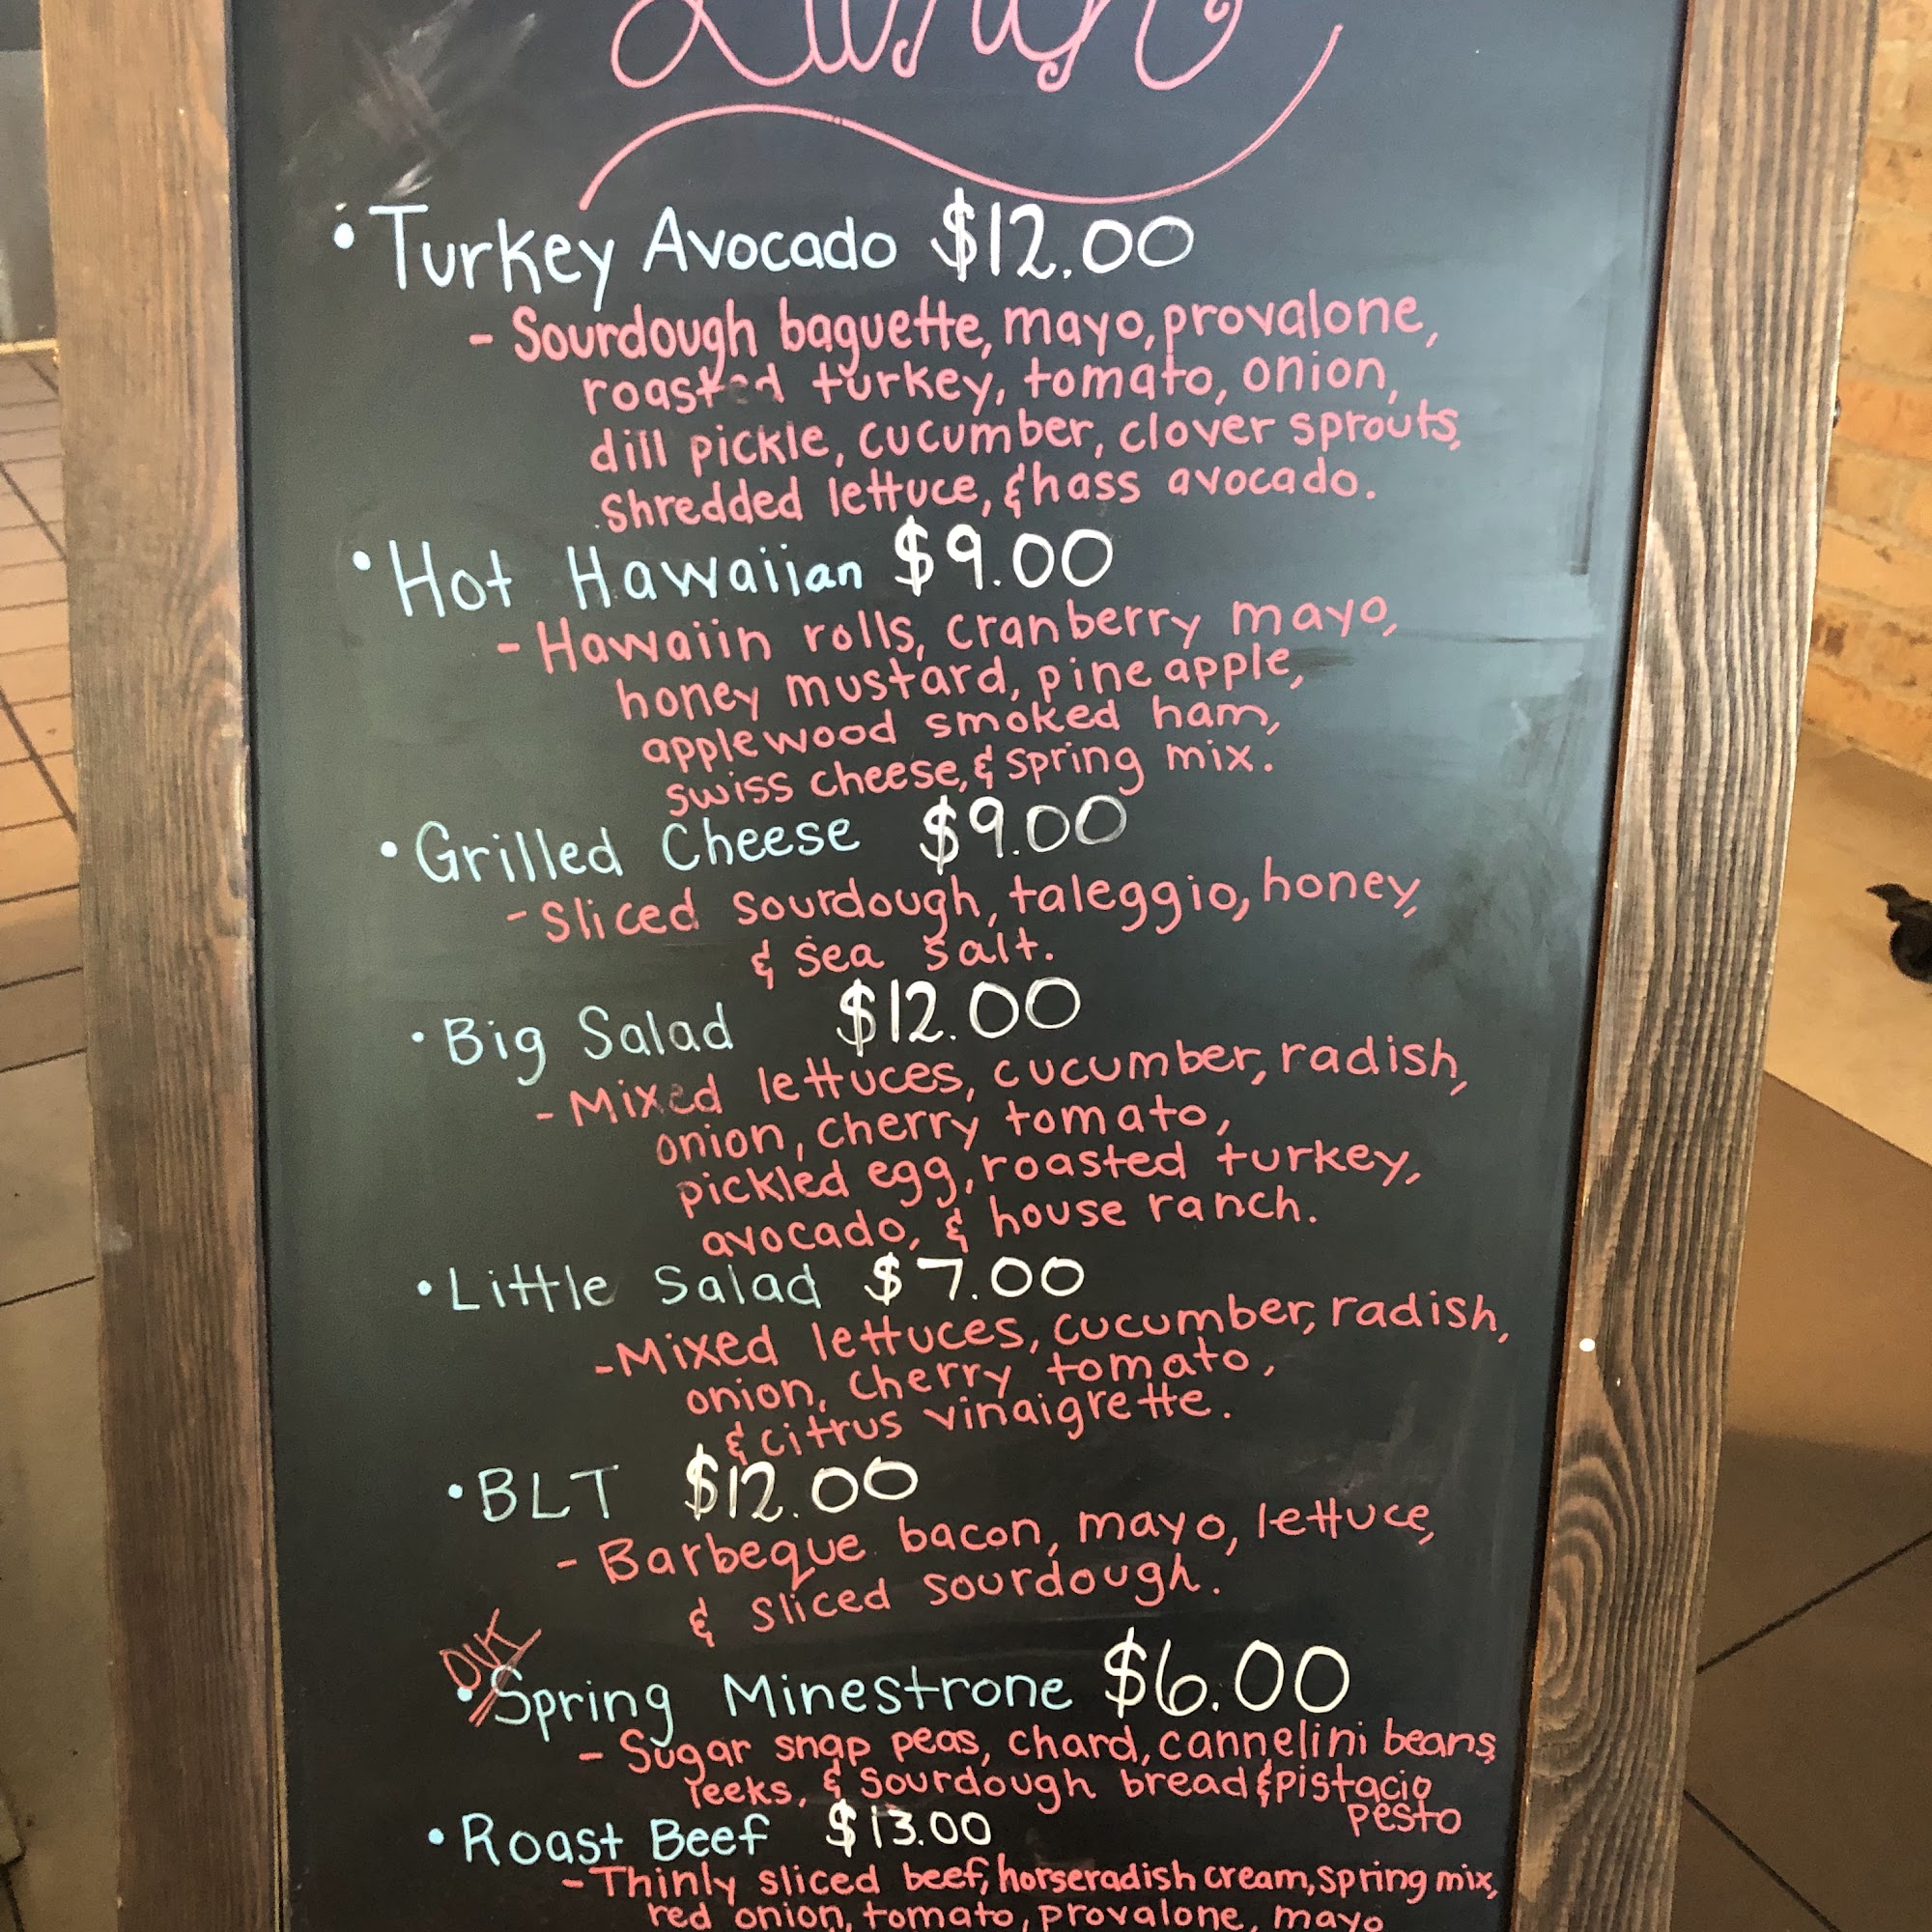 Lunch
• Turkey Avocado $12.00
- Sourdough baguette, mayo, provalone,
roasted turkey, tomato, onion,
dill pickle, cucumber, clover sprouts,
shredded lettuce, & hass avocado.
• Hot Hawaiian $9.00
- Hawaiin rolls, cranberry mayo,
honey mustard, pineapple,
applewood smoked ham,
swiss cheese, & spring mix.
• Grilled Cheese $9.00
- Sliced sourdough, taleggio, honey,
& sea salt.
• Big Salad $12.00
- Mixed lettuces, cucumber, radish,
onion, cherry tomato,
pickled egg, roasted turkey,
avocado, & house ranch.
• Little Salad $7.00
- Mixed lettuces, cucumber, radish,
onion, cherry tomato,
& citrus vinaigrette.
• BLT $12.00
- Barbeque bacon, mayo, lettuce,
& sliced sourdough.
• Spring Minestrone $6.00
- Sugar snap peas, chard, cannelini beans,
leeks, & sourdough bread & pistacio
pesto
• Roast Beef $13.00
- Thinly sliced beef, horseradish cream, spring mix,
red onion, tomato, provalone, mayo